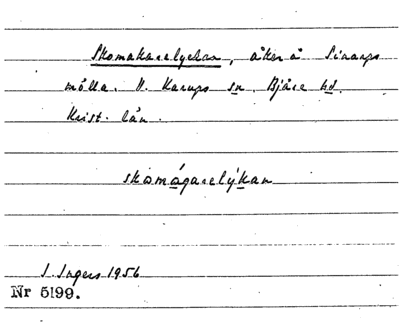 Skomakarelyckan, åker å Sinarps
mölla. V. Karups sn. Bjäre hd.
Krist. län.
skomágarelýkan
I. Ingers 1956
Nr 5199.